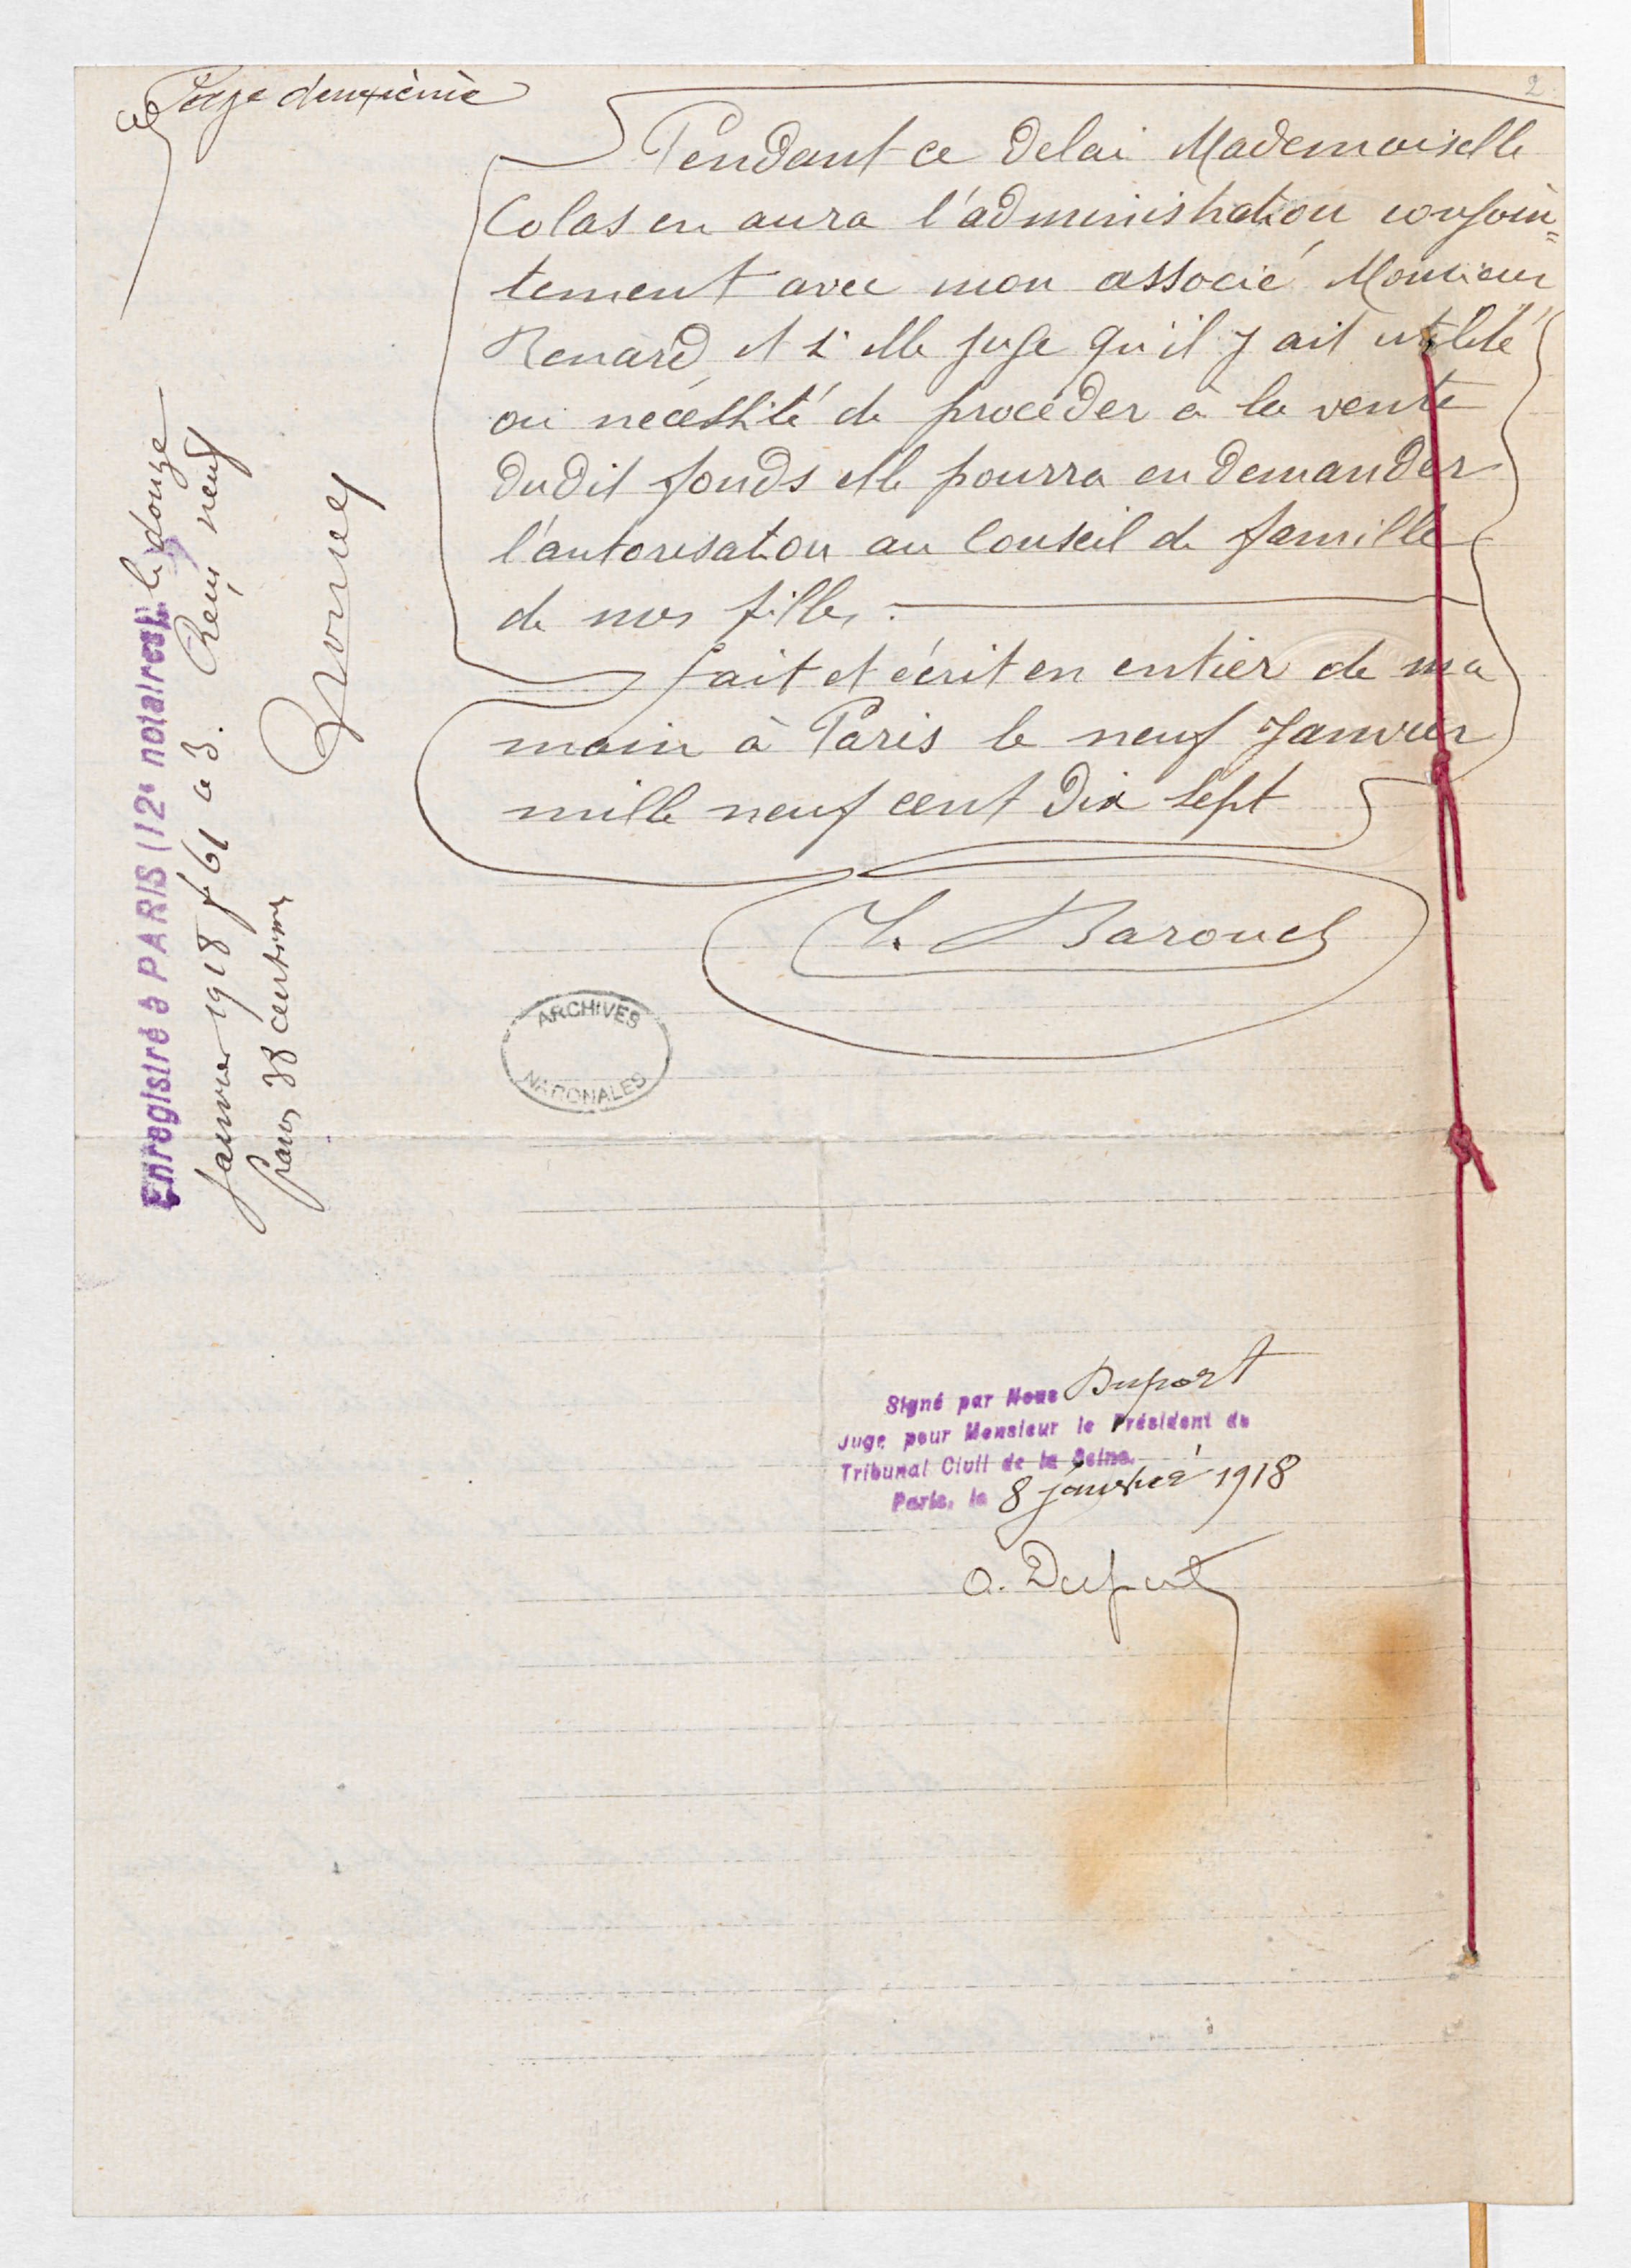 Page deuxième
2
Pendant ce delai Mademoiselle
Colas en aura l'administration conjoin=
tement avec mon associé Monsieur
Renard et si elle juge qu'il y ait utilité
ou nécéssité de procéder à la vente
dudit fonds elle pourra en demander
l'autorisation au Conseil de famille
de mes filles.
fait et écrit en entier de ma
main à Paris le neuf Janvier
mille neuf cent dix sept
Barouch
ARCHIVES
NATIONALES
Enregistré à PARIS (12e notaires), le douze
Janvier 1918 fo 61 c 3. Reçu neuf
francs 38 centimes
Signé par Nous Duport
Juge pour Monsieur le Président du
Tribunal Civil de la Seine.
Paris, le 8 janvier 1918
A. Duport